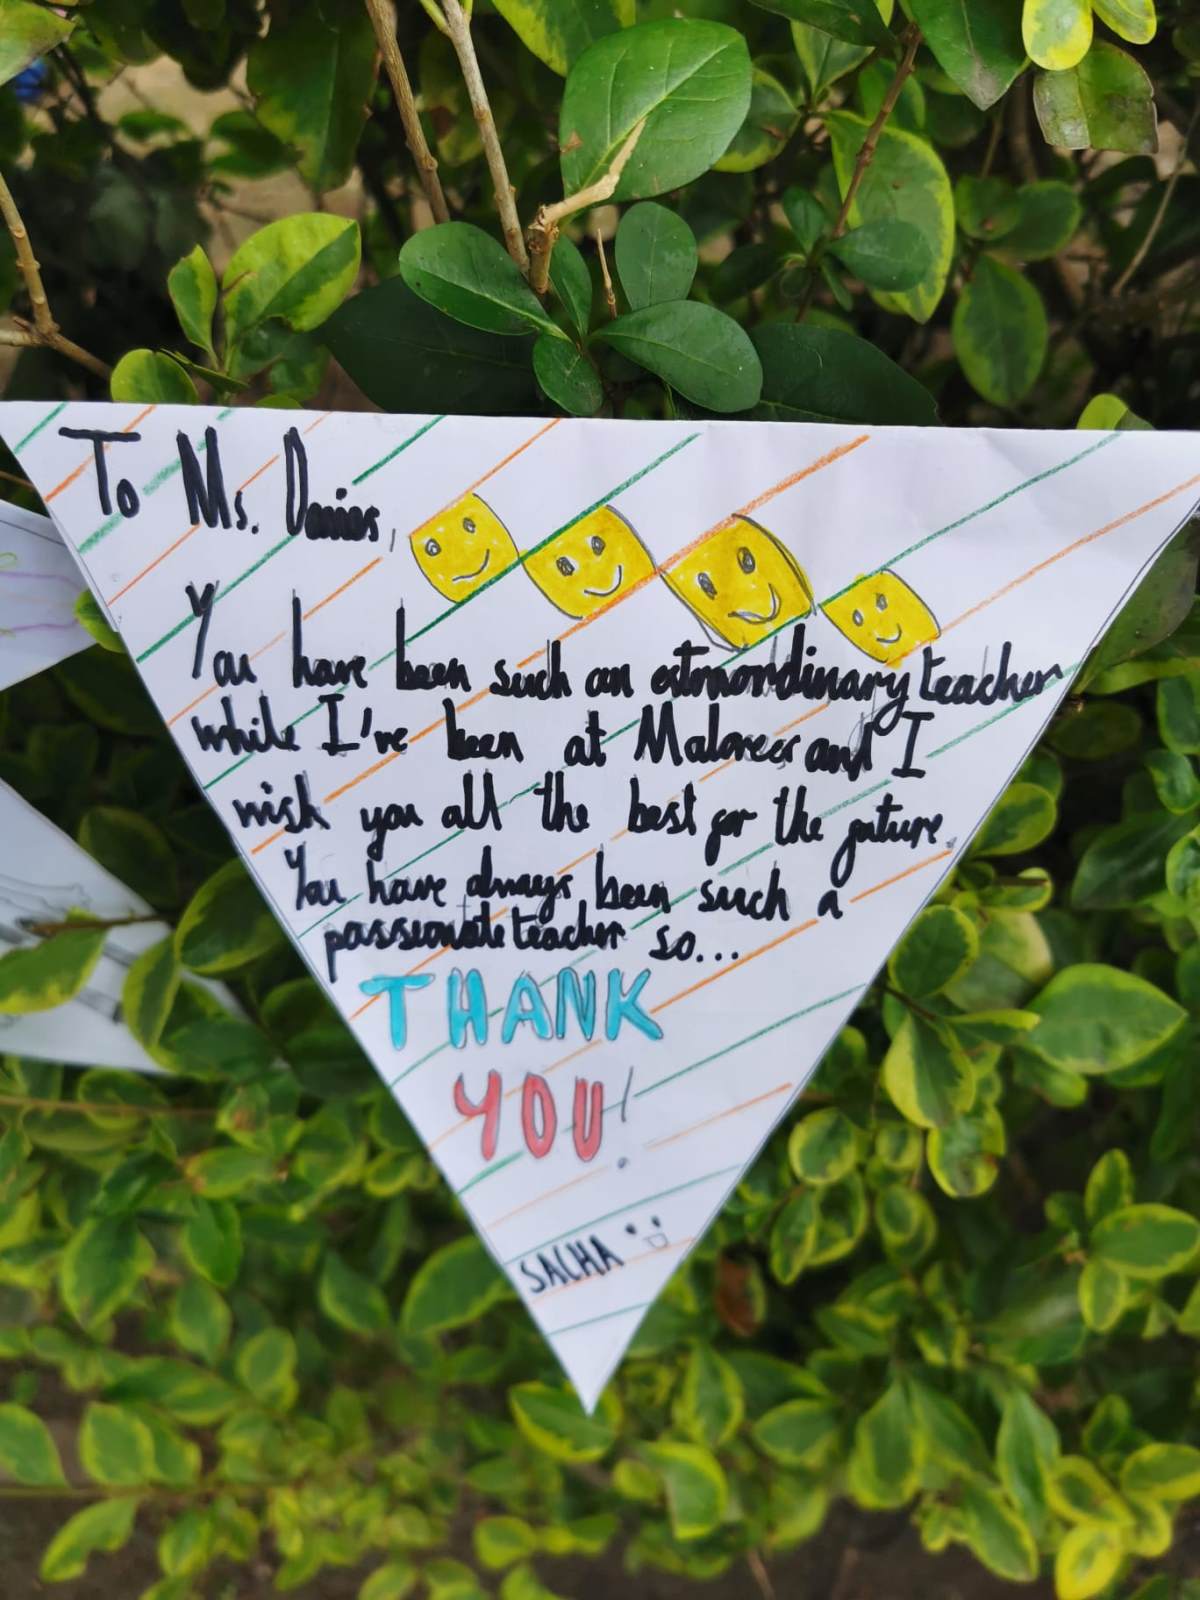 To Ms. Davies,
You have been such an extraordinary teacher
while I've been at Malorees and I
wish you all the best for the future.
You have always been such a
passionate teacher so...
THANK
YOU!
SACHA